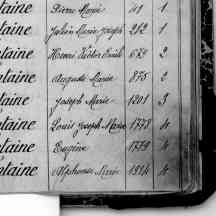 laine Pierre Marie 41 1
laine Julien Marie Joseph 212 1
laine Henri Victor Emile 679 2
laine Auguste Marie 875 2
laine Joseph Marie 1201 3
laine Louis Joseph Marie 1778 4
laine Eugène 1779 4
laine Alphonse Marie 1914 4